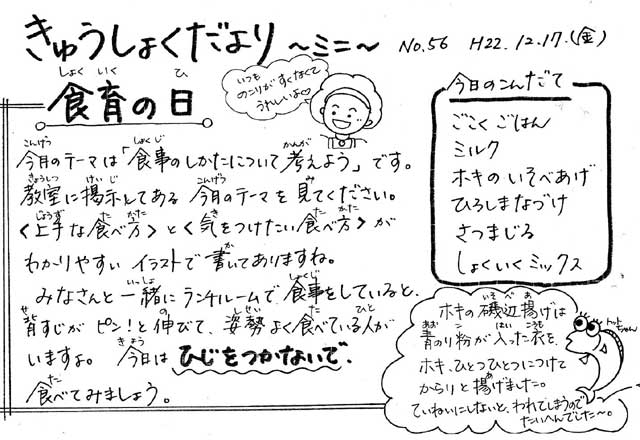 きゅうしょくだより ～ミニ～ No.56 H22.12.17.(金)
食育の日
いつも
のこりがすくなくて
うれしいよ♡
今月のテーマは「食事のしかたについて考えよう」です。
教室に掲示してある今月のテーマを見てください。
〈上手な食べ方〉と〈気をつけたい食べ方〉が
わかりやすいイラストで書いてありますね。
みなさんと一緒にランチルームで食事をしていると、
背すじがピン!と伸びて、姿勢よく食べている人が
いますよ。今日はひじをつかないで、
食べてみましょう。
今日のこんだて
ごこくごはん
ミルク
ホキのいそべあげ
ひろしまなづけ
さつまじる
しょくいくミックス
ホキの磯辺揚げは
青のり粉が入った衣を、
ホキ、ひとつひとつにつけて
からりと揚げました。
ていねいにしないと、われてしまうので
たいへんでした〜。
トットちゃん